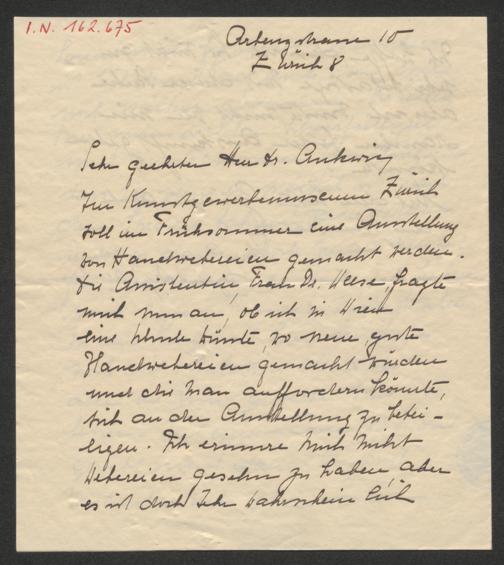 I.N. 162.675
Arbenzstrasse 15
Zürich 8
Sehr geehrter Herr Dr. Ankwicz
Im Kunstgewerbemuseum Zürich
soll im Frühsommer eine Ausstellung
von Handwebereien gemacht werden.
Die Assistentin Frau Dr. Weese, fragte
mich nun an, ob ich in Wien
eine Stelle wüsste, wo neue, gute
Handwebereien gemacht würden
und die man auffordern könnte,
sich an der Ausstellung zu betei-
ligen. Ich erinnere mich nicht
Webereien gesehn zu haben aber
es ist doch sehr wahrscheinlich